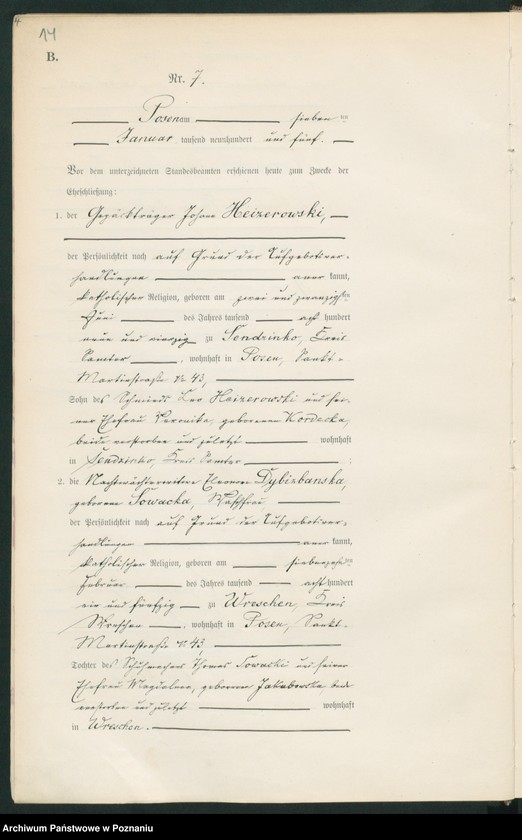 14
B.
Nr. 7.
Posen am sieben ten
Januar tausend neunhundert und fünf.
Vor dem unterzeichneten Standesbeamten erschienen heute zum Zwecke der
Eheschließung:
1. der Gepäckträger Johann Heizerowski,
der Persönlichkeit nach auf Grund der Aufgebotsver-
handlungen anerkannt,
katholischer Religion, geboren am zwei und zwanzigsten
Juni des Jahres tausend acht hundert
neun und vierzig zu Sendzinko, Kreis
Samter, wohnhaft in Posen, Sankt-
Martinstraße № 43,
Sohn des Schmieds Leo Heizerowski und sei-
ner Ehefrau Veronika, geborenen Kordecka,
beide verstorben und zuletzt wohnhaft
in Sendzinko, Kreis Samter ;
2. die Nachtwächterwitwe Eleonore Dybizbanska,
geborene Nowacka, Waschfrau,
der Persönlichkeit nach auf Grund der Aufgebotsver-
handlungen anerkannt,
katholischer Religion, geboren am siebenzehnten
Februar des Jahres tausend acht hundert
ein und fünfzig zu Wreschen, Kreis
Wreschen, wohnhaft in Posen, Sankt-
Martinstraße № 43,
Tochter des Schuhmachers Thomas Nowacki und seiner
Ehefrau Magdalena, geborenen Jakubowska, beide
verstorben und zuletzt wohnhaft
in Wreschen.
Archiwum Państwowe w Poznaniu